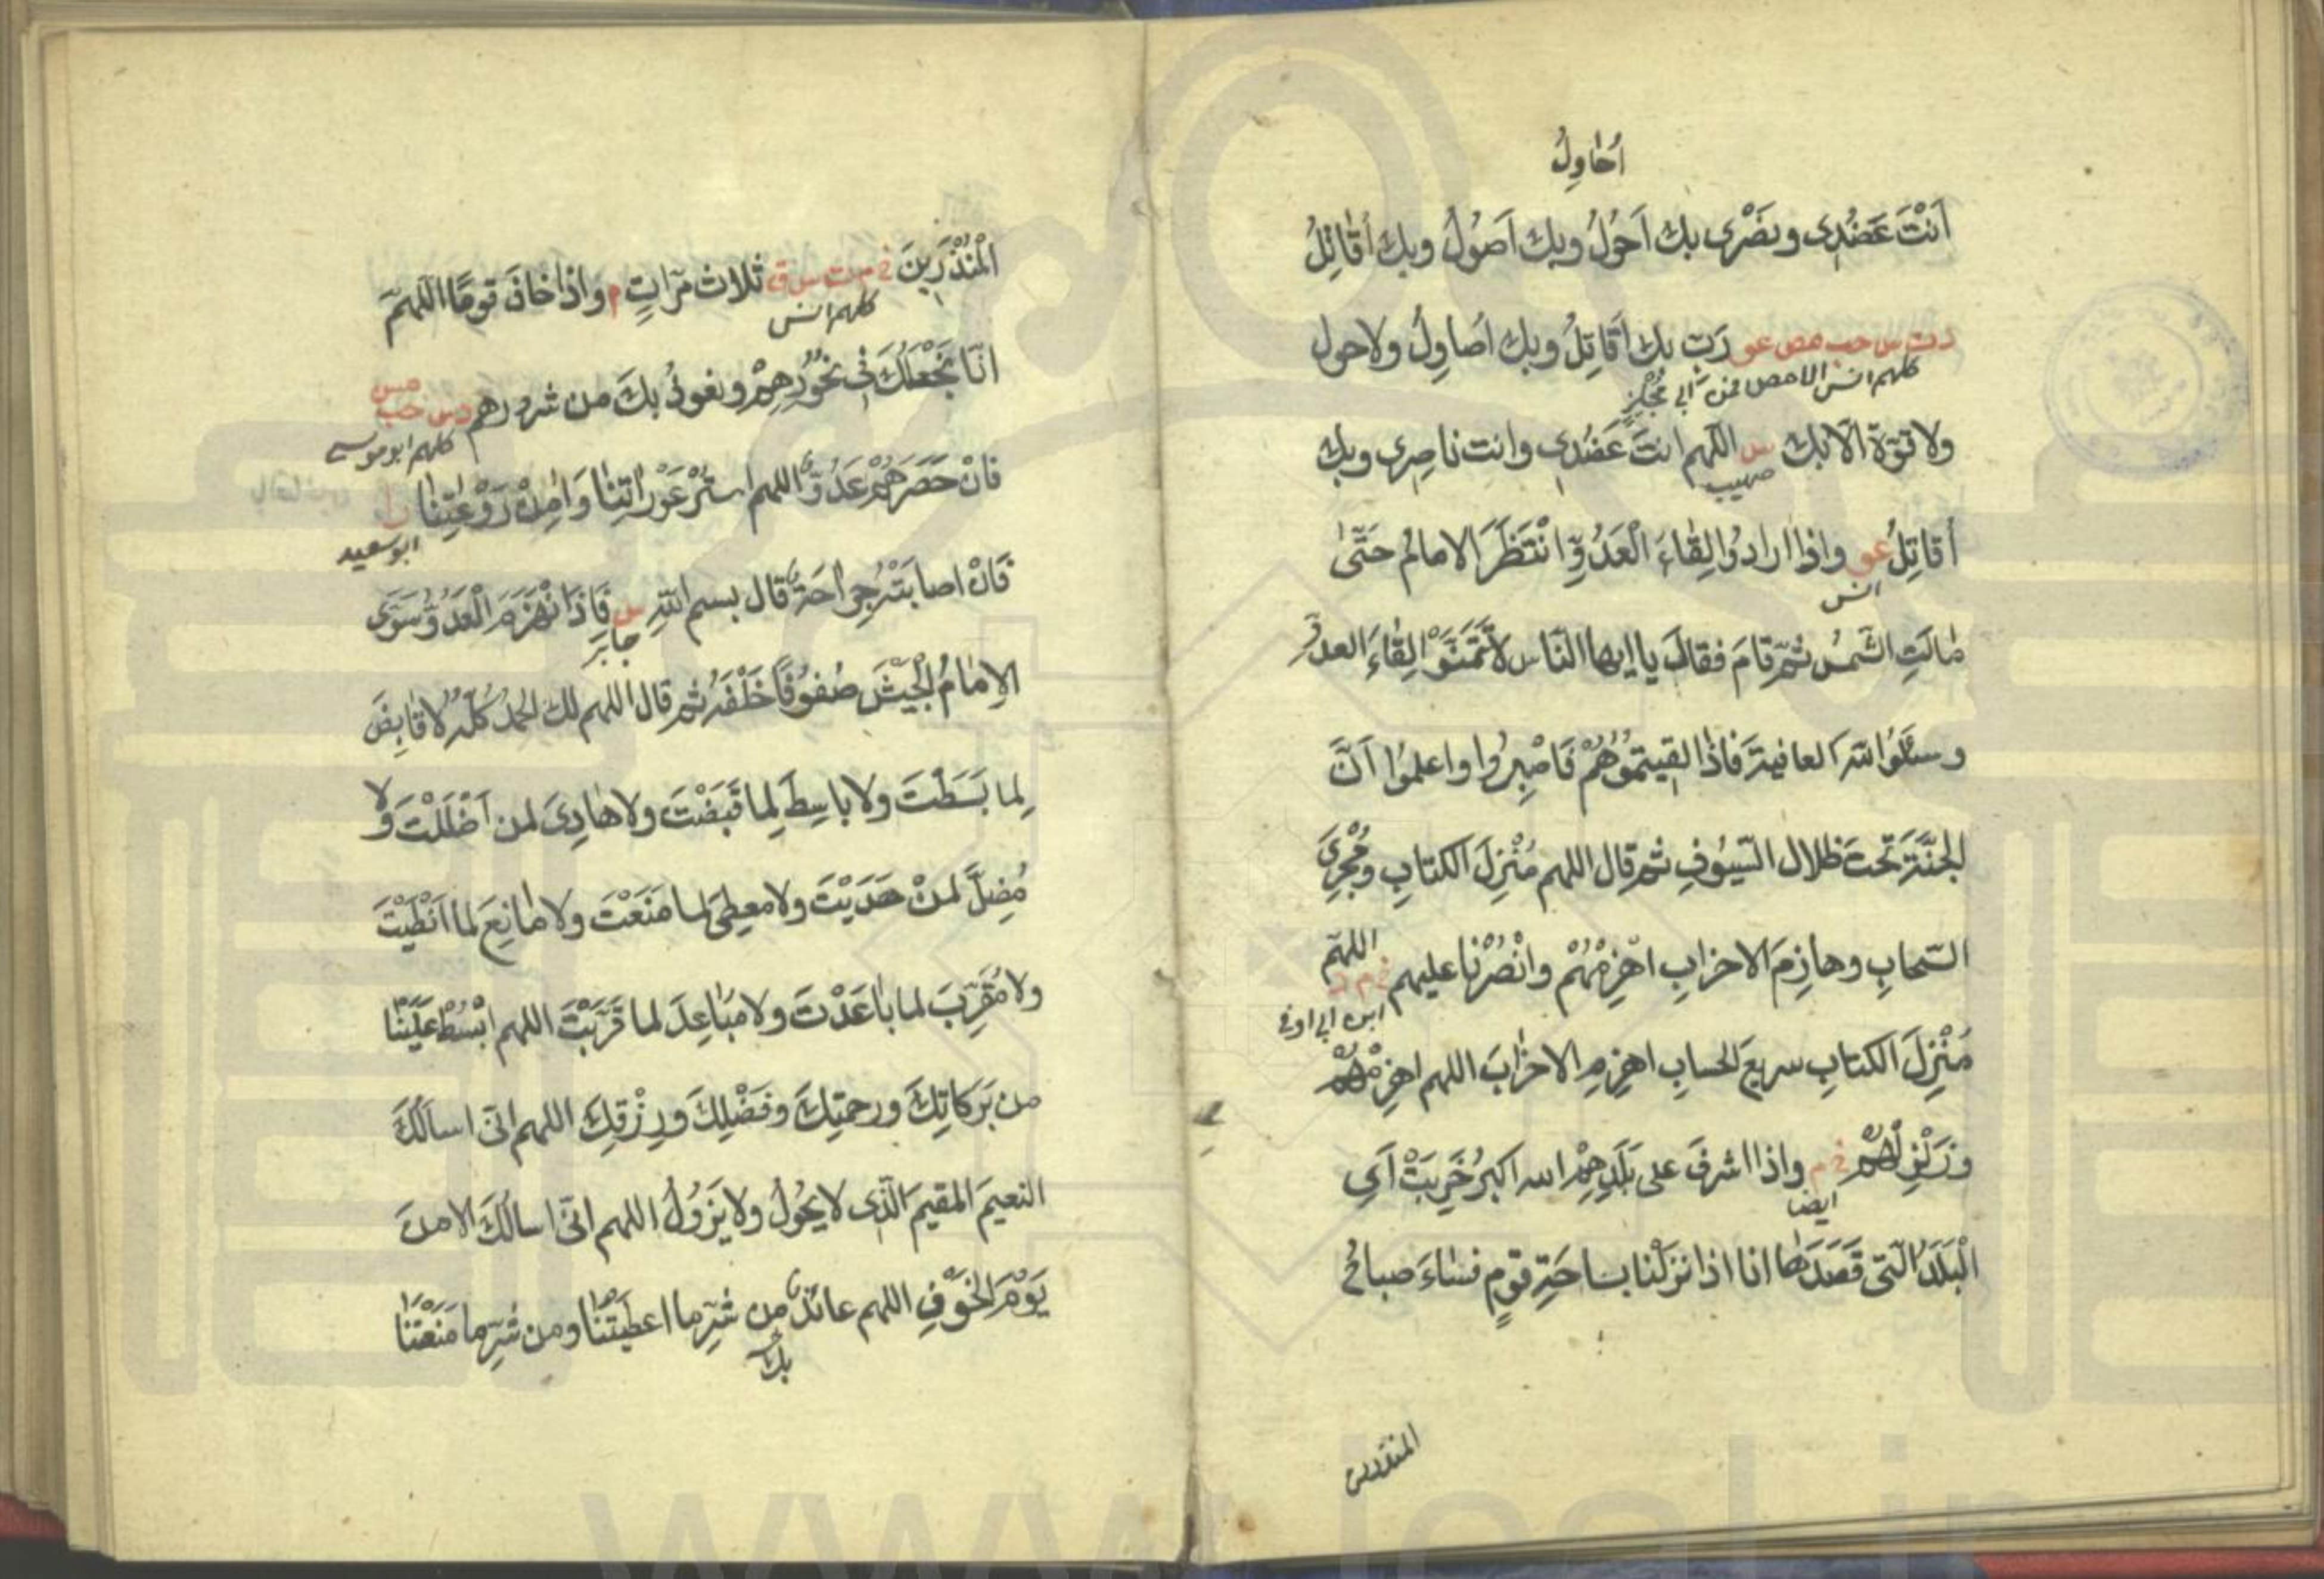 اُحَاوِلُ
اَنْتَ عَضُدِى ونَصْرِى بك اَحُولُ وبك اَصُولُ وبك اُقَاتِلُ
دت س حب مص عو رَبِّ بك اُقَاتِلُ وبك اُصَاوِلُ ولا حول
كلهم انس الا مص فمن ابى مُجْلِزٍ
ولا قوّة الّا بك س اللهم انتَ عَضُدِى وانت ناصِرِى وبك
صهيب
اُقَاتِلُ عو واذا ارادُوا لِقَاءَ الْعَدُوِّ انْتَظَرَ الامامُ حَتّىٰ
انس
مَالَتِ الشّمسُ ثمّ قامَ فقالَ يا ايها النّاس لاتَتَمَنَّوْا لِقَاءَ العدوِّ
وسئَلُوا اللّٰه العافيةَ فاذا لقيتمُوُهُمْ فَاصْبِرُوا واعلمُوا اَنَّ
الجنّةَ تحتَ ظلال السّيُوفِ ثم قال اللهم مُنْزِلَ الكتابِ ومُجْرِىَ
السّحابِ وهازِمَ الاحزابِ اهْزِمْهُمْ وانْصُرْنَا عليهم خ م د اللهمّ
ابن ابى اوفى
مُنْزِلَ الكتابِ سريعَ الحسابِ اهزِمِ الاحْزَابَ اللهم اهزِمْهُمْ
وزَلْزِلْهُمْ خ م واذا اشرفَ على بَلَدِهِمْ الله اكبرُ خَرِبَتْ اَىِ
ايضا
الْبَلَدُ الّتى قَصَدَهَا انا اذا نزَلْنا بساحَةِ قومٍ فسَاءَ صباحُ
المنذرين
الْمُنْذَرِينَ خ م ت س ق ثلاث مَرّاتٍ م واذا خافَ قومًا اللهمّ
كلهم انس
انّا نَجْعَلُكَ فى نُحُورِهِمْ ونعوذُ بكَ من شرورهم د س حب مس
كلهم ابو موسى
فانْ حَصَرَهُمْ عَدُوٌّ اللهم استُرْ عَوْرَاتِنَا وَاٰمِنْ رَوْعَتِنَا را
ابو سعيد
فَانْ اصابَتْهُ جِرَاحَةٌ قال بسم اللّٰهِ س فَاِذَا انْهَزَمَ الْعَدُوُّ سَوَّى
جابر
الاِمَامُ الْجَيْشَ صُفُوفًا خَلْفَهُ ثم قال اللهم لك الحمدُ كُلّهُ لا قابِضَ
لِما بَسَطْتَ ولا باسِطَ لِما قَبَضْتَ ولا هَادِىَ لمن اَضْلَلْتَ وَلا
مُضِلَّ لمنْ هَدَيْتَ ولا معطِىَ لما مَنَعْتَ ولا مَانِعَ لما اَنْطَيْتَ
ولا مُقَرِّبَ لما بَاعَدْتَ ولا مُبَاعِدَ لما قَرَّبْتَ اللهم ابْسُطْ عَلَيْنَا
من بَرَكَاتِكَ ورحمتِكَ وفَضْلِكَ ورِزْقِكَ اللهم انّى اسالُكَ
النعيمَ المقيمَ الّذى لا يَحُولُ ولا يَزُولُ اللهم انّى اسالُكَ الامنَ
يَوْمَ الْخَوْفِ اللهم عائذٌ من شرِّ ما اعطَيْتَنَا ومن شرِّ ما مَنَعْتَنَا
بك